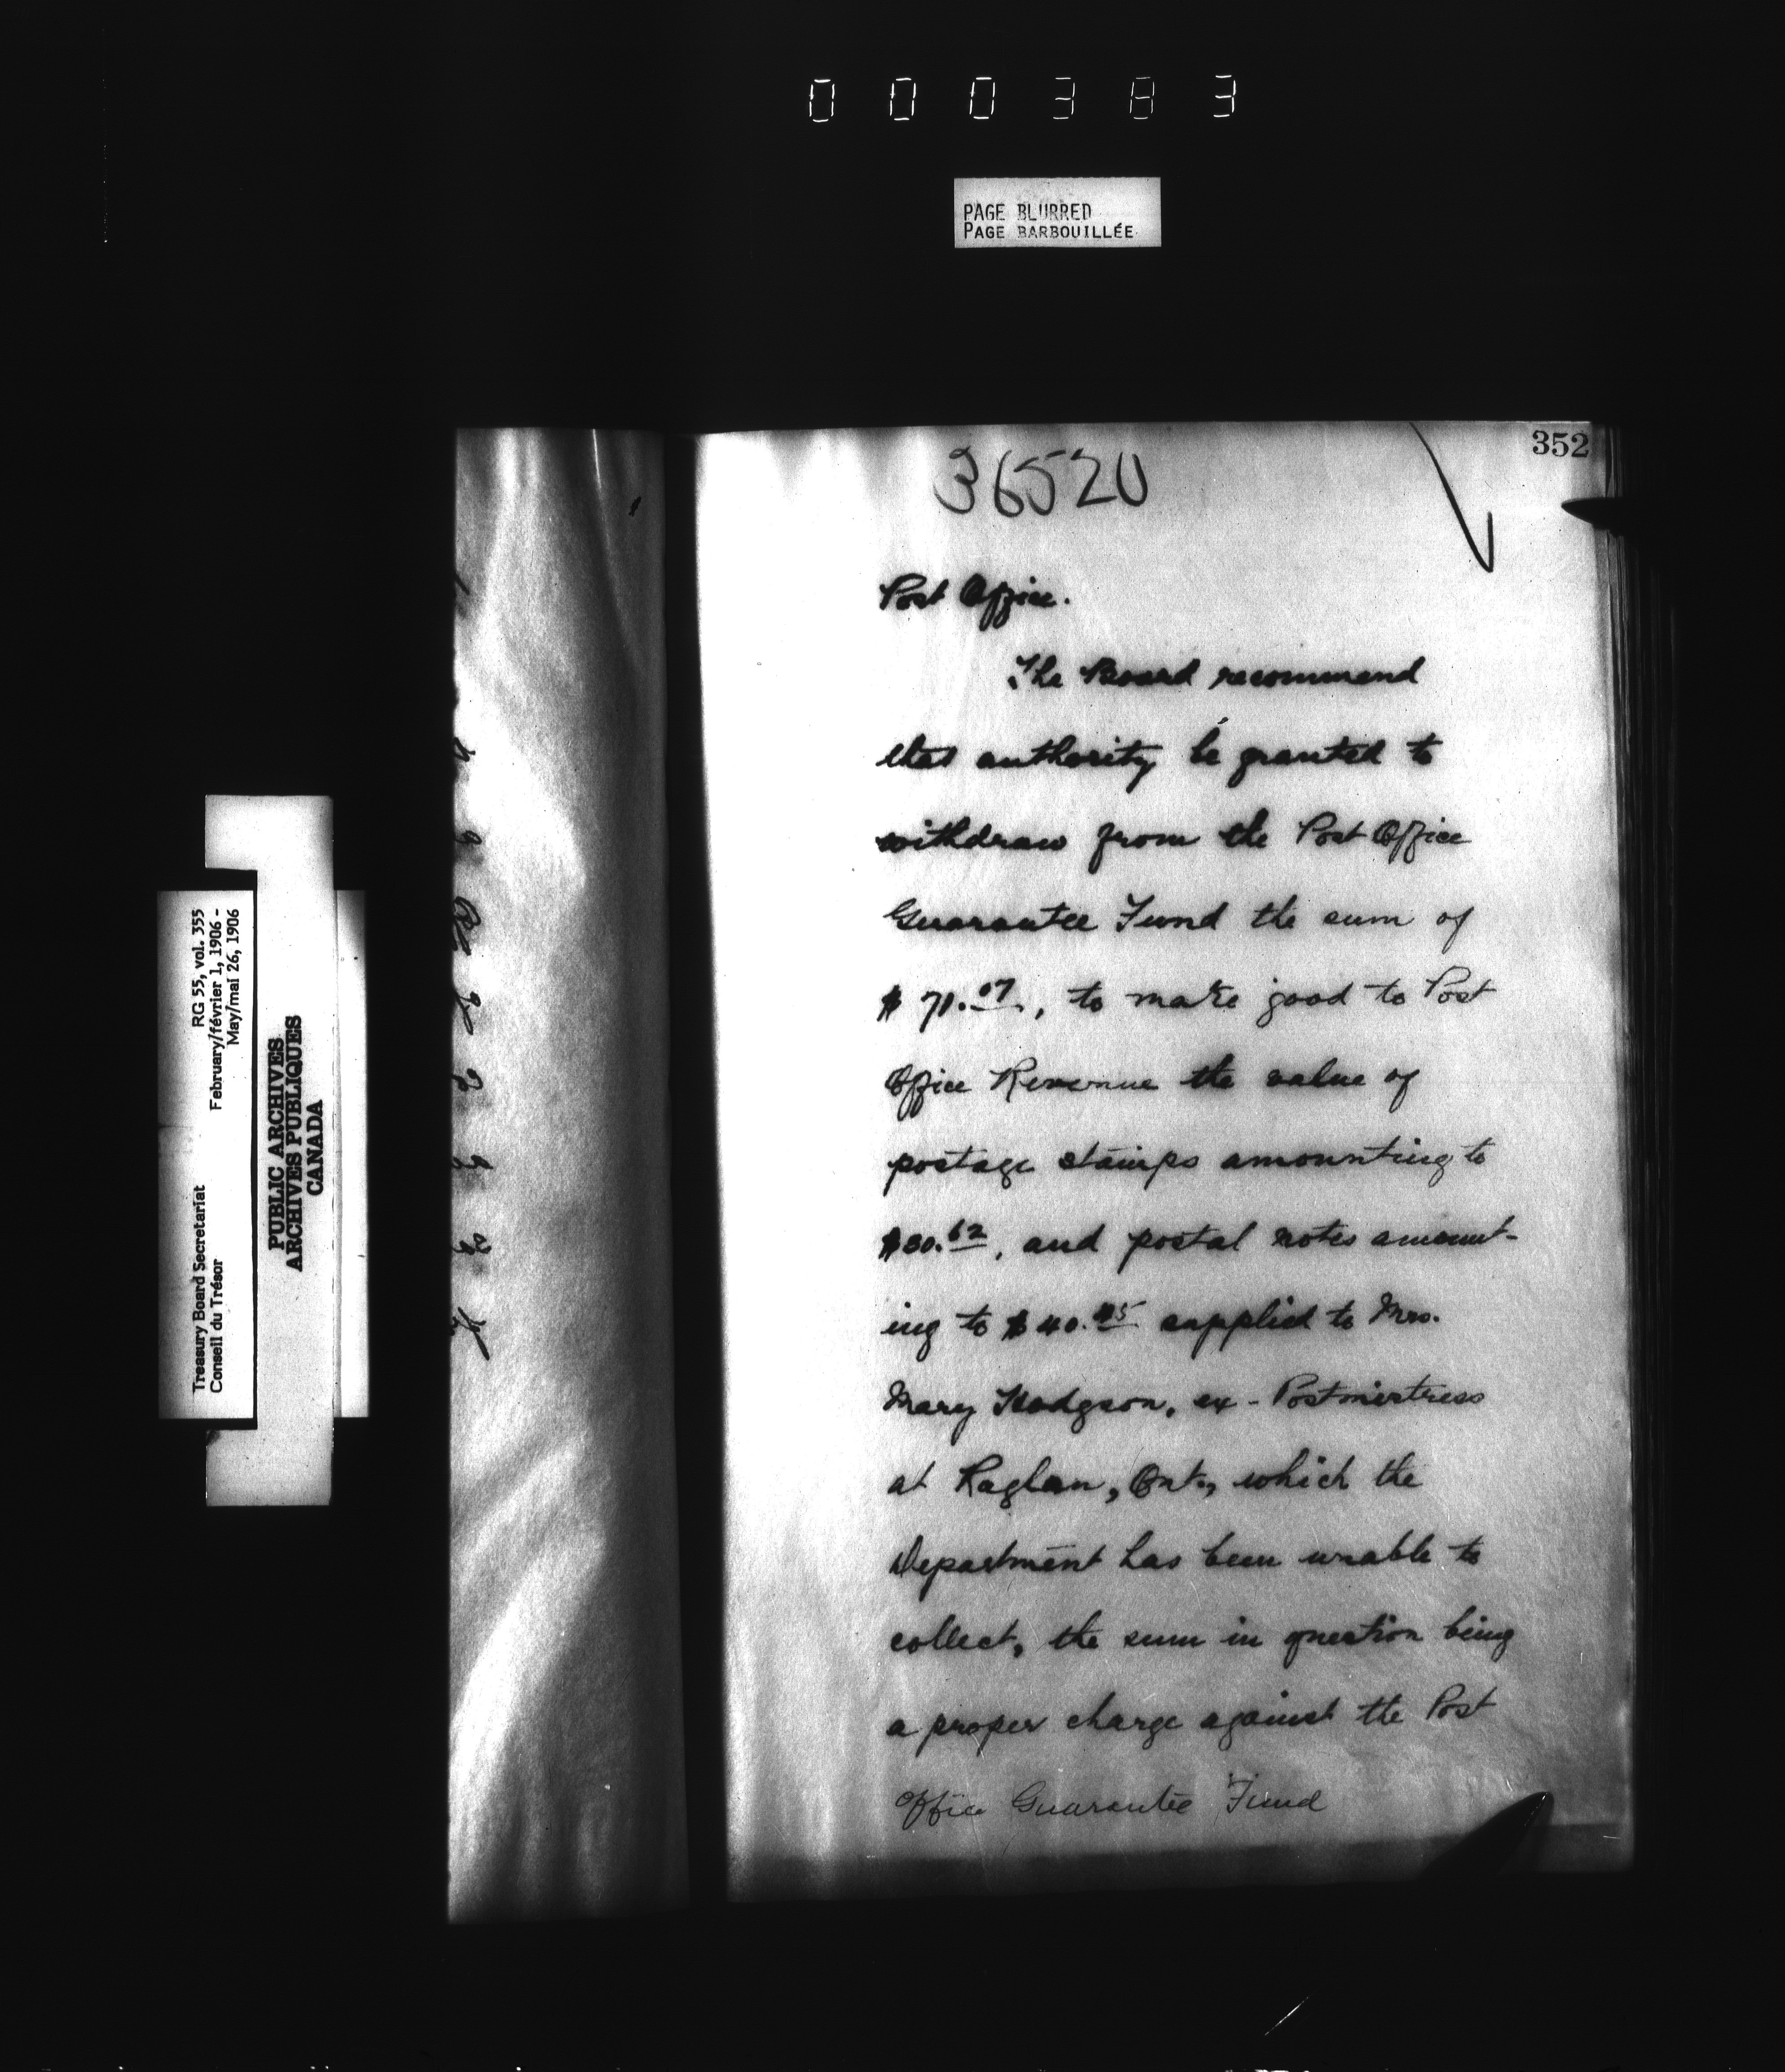 000383
PAGE BLURRED
PAGE BARBOUILLÉE
352
36520
Post Office.
The Board recommend
that authority be granted to
withdraw from the Post Office
Guarantee Fund the sum of
$71.07, to make good to Post
Office Revenue the value of
postage stamps amounting to
$30.62, and postal notes amount-
ing to $40.45 supplied to Mrs.
Mary Hodgson, ex-Postmistress
at Raglan, Ont., which the
Department has been unable to
collect, the sum in question being
a proper charge against the Post
Office Guarantee Fund
Treasury Board Secretariat RG 55, vol. 355
Conseil du Trésor February/février 1, 1906 -
May/mai 26, 1906
PUBLIC ARCHIVES
ARCHIVES PUBLIQUES
CANADA